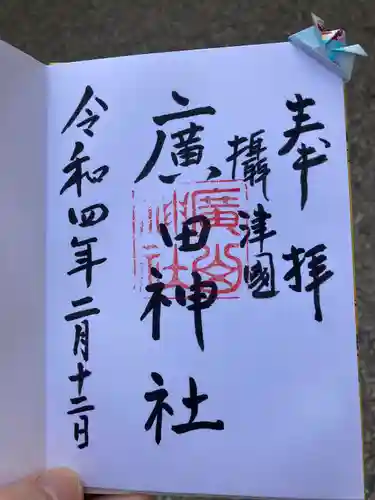 奉拝
攝津國
廣田神社
令和四年二月十二日
廣田
神社